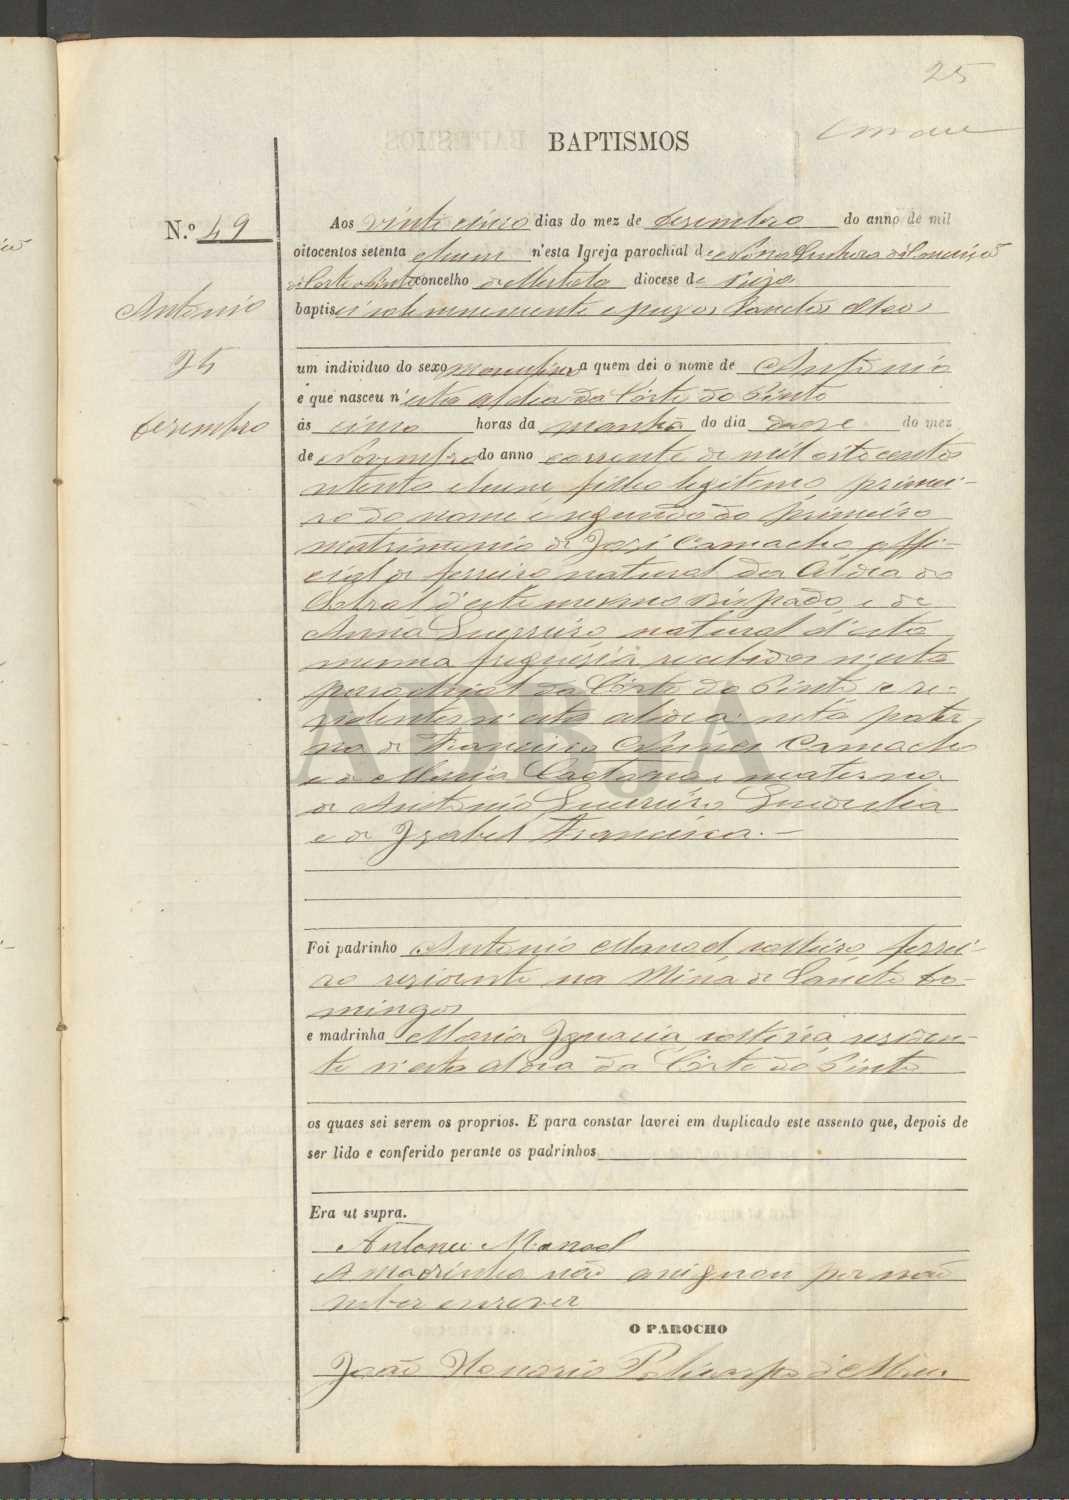 25
BAPTISMOS
N.º 49
Antonio
25
Dezembro
Aos vinte cinco dias do mez de Dezembro do anno de mil
oitocentos setenta e hum n'esta Igreja parochial de Nossa Senhora da Conceição
da Corte do Pinto concelho de Mertola diocese de Beja
baptisei solemnemente e puz os Sanctos Oleos
um individuo do sexo masculino a quem dei o nome de Antonio
e que nasceu n'esta aldea da Côrte do Pinto
ás cinco horas da manhã do dia doze do mez
de Novembro do anno corrente de mil oito centos
setenta e hum filho legitimo primei-
ro do nome e segundo do primeiro
matrimonio de José Camacho offi-
cial de ferreiro natural da Aldea do
Sobral d'este mesmo Bispado, e de
Anna Guerreiro natural d'esta
mesma freguesia recebidos n'esta
parochial da Côrte do Pinto e re-
sidentes n'esta aldea: neto pater
no de Francisco Nunes Camacho
e de Maria Caetana, e materno
de Antonio Guerreiro
e de Izabel Francisca. -
Foi padrinho Antonio Manoel solteiro ferrei-
ro residente na Mina de Sancto Do-
mingos
e madrinha Maria Ignacia solteira, residen-
te n'esta aldea da Côrte do Pinto
os quaes sei serem os proprios. E para constar lavrei em duplicado este assento que, depois de
ser lido e conferido perante os padrinhos
Era ut supra.
Antonio Manoel
A madrinha não assignou por não
saber escrever
O PAROCHO
João Honorio Policarpo
ADBJA